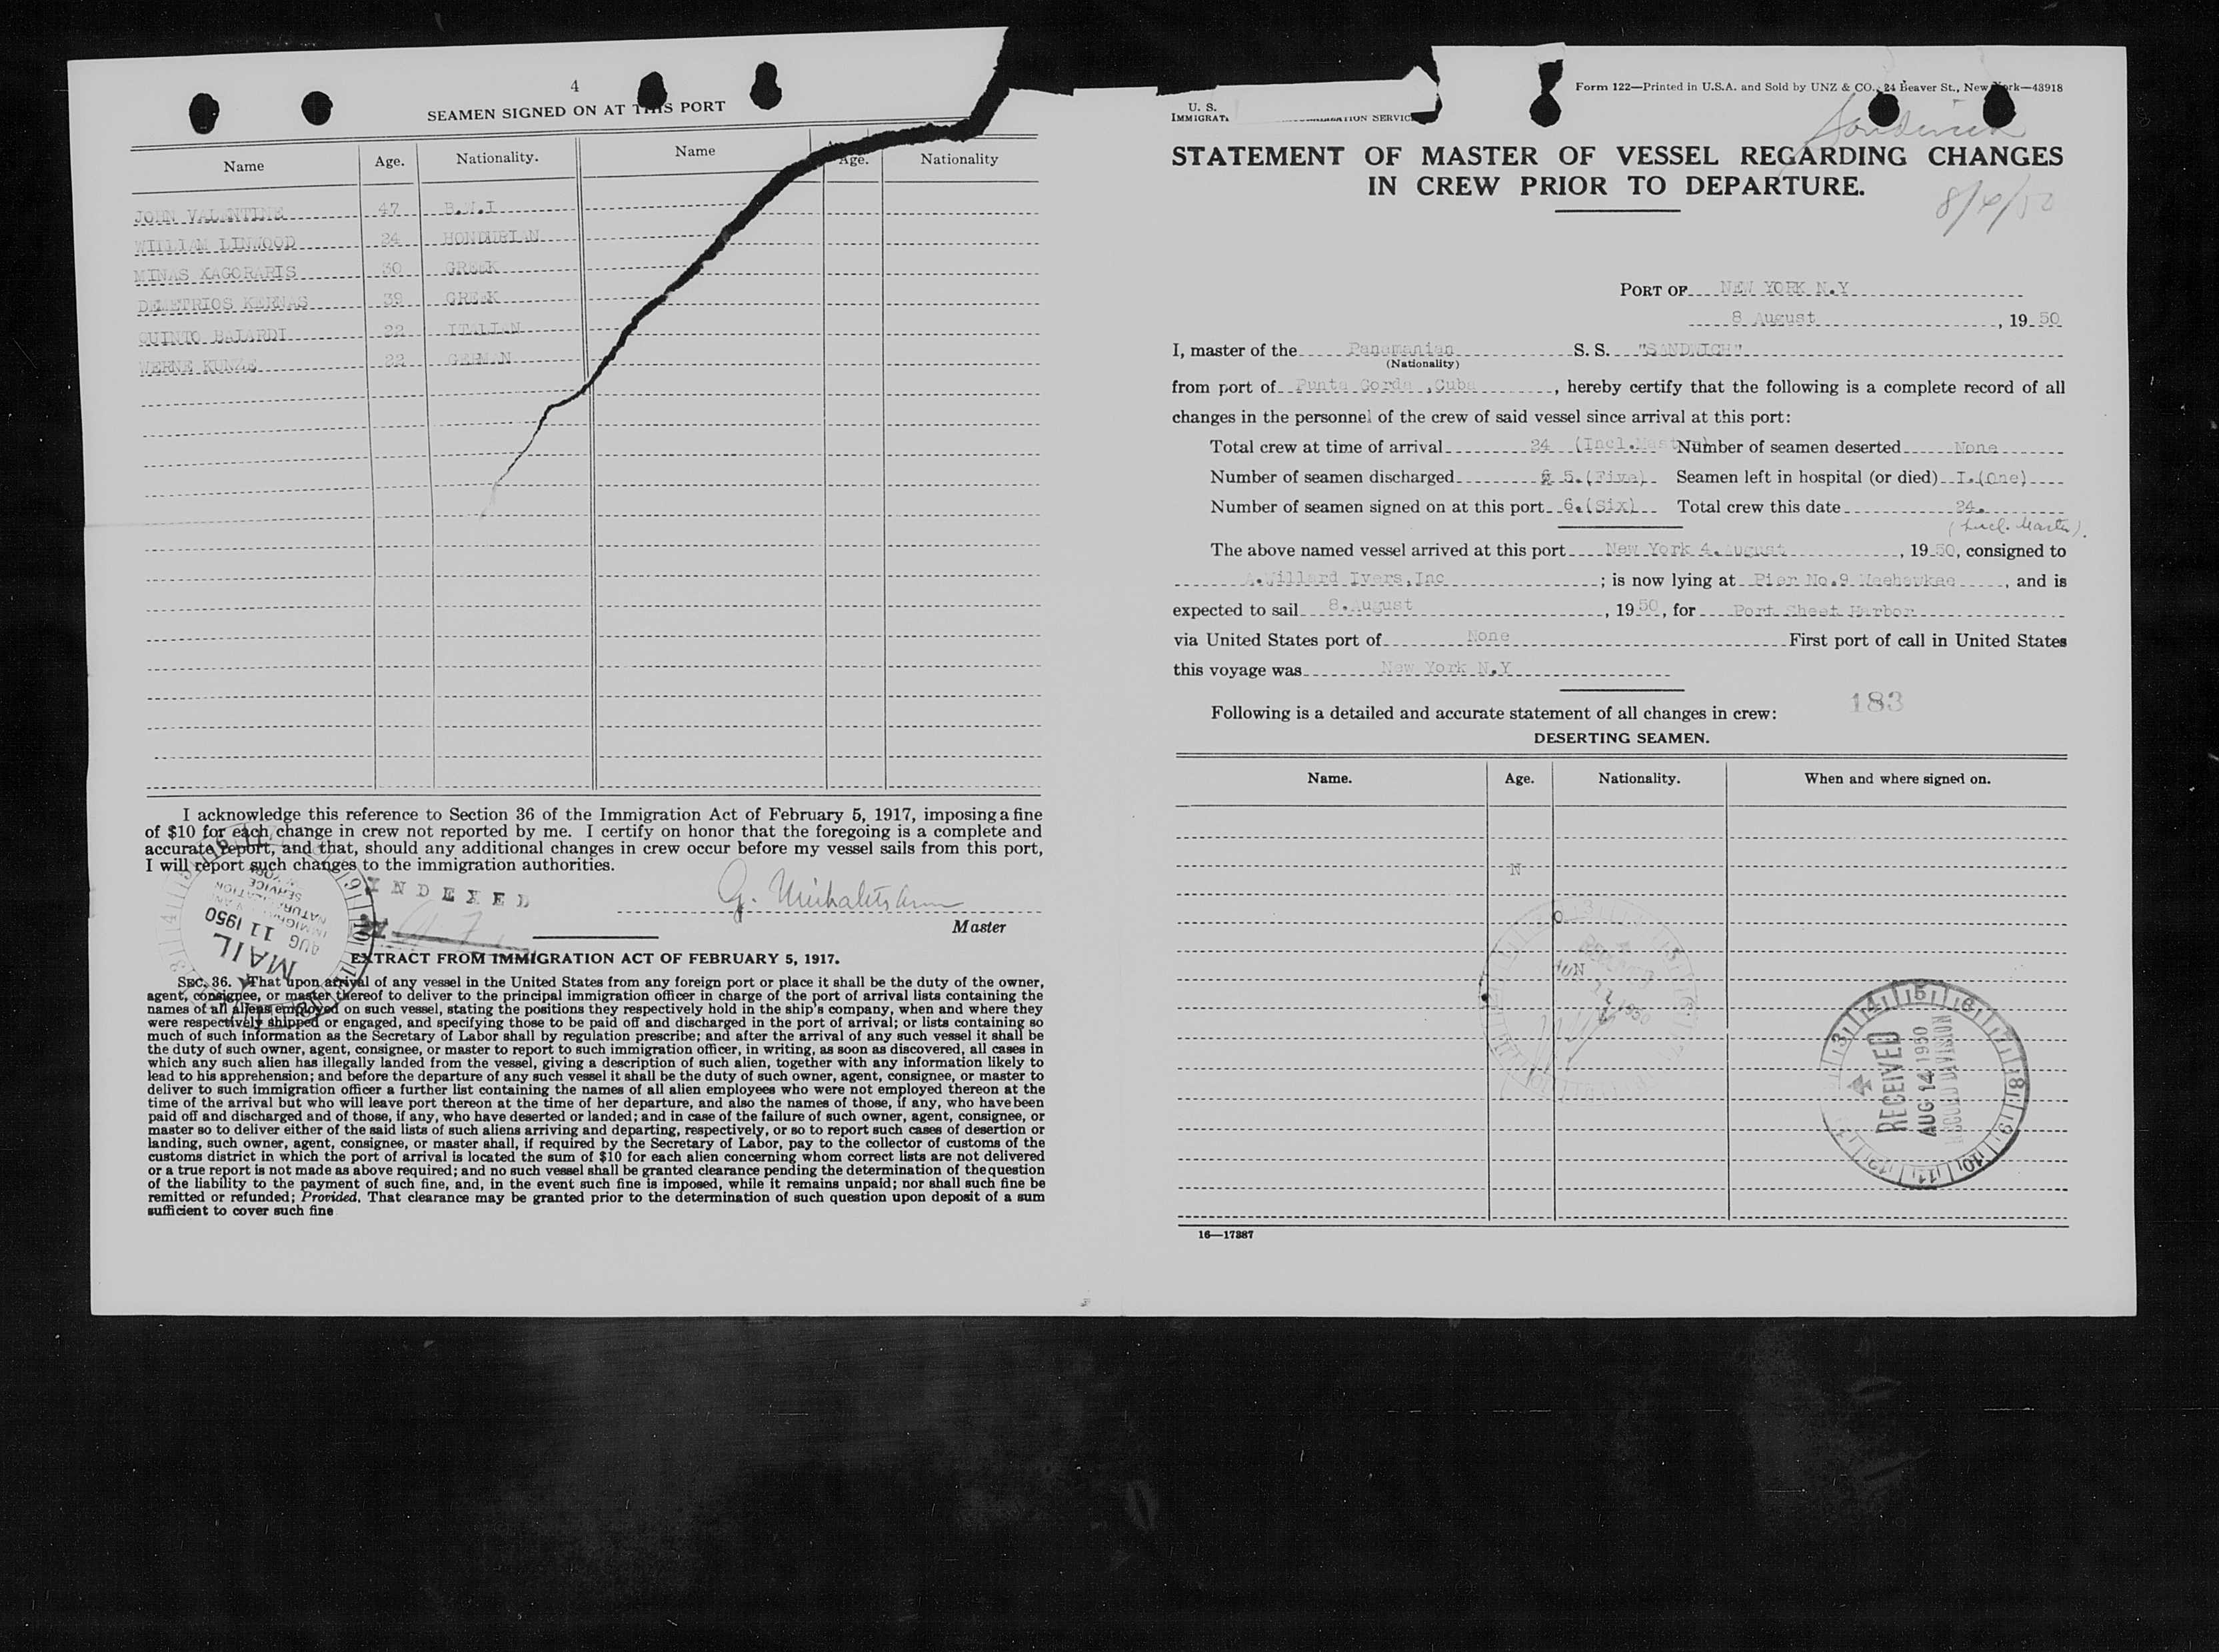 4
SEAMEN SIGNED ON AT THIS PORT
Name Age. Nationality. Name Age. Nationality
JOHN VALENTINE 47 B.W.I
WILLIAM LINWOOD 24 HONDURIAN
MINAS XAGORARIS 30 GREEK
DEMETRIOS KERNAS 39 GREEK
QUINTO BAIARDI 22 ITALIAN
WERNE KUNZE 22 GERMAN
I acknowledge this reference to Section 36 of the Immigration Act of February 5, 1917, imposing a fine
of $10 for each change in crew not reported by me. I certify on honor that the foregoing is a complete and
accurate report, and that, should any additional changes in crew occur before my vessel sails from this port,
I will report such changes to the immigration authorities.
INDEXED
MAIL
AUG 11 1950
IMMIGRATION AND
NATURALIZATION
SERVICE
Master
EXTRACT FROM IMMIGRATION ACT OF FEBRUARY 5, 1917.
SEC. 36. That upon arrival of any vessel in the United States from any foreign port or place it shall be the duty of the owner,
agent, consignee, or master thereof to deliver to the principal immigration officer in charge of the port of arrival lists containing the
names of all aliens employed on such vessel, stating the positions they respectively hold in the ship's company, when and where they
were respectively shipped or engaged, and specifying those to be paid off and discharged in the port of arrival; or lists containing so
much of such information as the Secretary of Labor shall by regulation prescribe; and after the arrival of any such vessel it shall be
the duty of such owner, agent, consignee, or master to report to such immigration officer, in writing, as soon as discovered, all cases in
which any such alien has illegally landed from the vessel, giving a description of such alien, together with any information likely to
lead to his apprehension; and before the departure of any such vessel it shall be the duty of such owner, agent, consignee, or master to
deliver to such immigration officer a further list containing the names of all alien employees who were not employed thereon at the
time of the arrival but who will leave port thereon at the time of her departure, and also the names of those, if any, who have been
paid off and discharged and of those, if any, who have deserted or landed; and in case of the failure of such owner, agent, consignee, or
master so to deliver either of the said lists of such aliens arriving and departing, respectively, or so to report such cases of desertion or
landing, such owner, agent, consignee, or master shall, if required by the Secretary of Labor, pay to the collector of customs of the
customs district in which the port of arrival is located the sum of $10 for each alien concerning whom correct lists are not delivered
or a true report is not made as above required; and no such vessel shall be granted clearance pending the determination of the question
of the liability to the payment of such fine, and, in the event such fine is imposed, while it remains unpaid; nor shall such fine be
remitted or refunded; Provided, That clearance may be granted prior to the determination of such question upon deposit of a sum
sufficient to cover such fine
Form 122—Printed in U.S.A. and Sold by UNZ & CO., 24 Beaver St., New York—43918
U. S.
SERVICE
Sandwich
STATEMENT OF MASTER OF VESSEL REGARDING CHANGES
IN CREW PRIOR TO DEPARTURE.
PORT OF NEW YORK N.Y
8 August, 1950
I, master of the Panamanian S. S. "SANDWICH"
(Nationality)
from port of Punta Gorda ,Cuba, hereby certify that the following is a complete record of all
changes in the personnel of the crew of said vessel since arrival at this port:
Total crew at time of arrival 24 (Incl.Master) Number of seamen deserted None
Number of seamen discharged 5.(Five) Seamen left in hospital (or died) I.(One)
Number of seamen signed on at this port 6.(Six) Total crew this date 24.
(Incl. Master).
The above named vessel arrived at this port New York 4.August, 1950, consigned to
A.Willard Ivers,Inc; is now lying at Pier No.9 Weehawkae, and is
expected to sail 8.August, 1950, for Port Sheet Harbor
via United States port of None First port of call in United States
this voyage was New York N.Y
183
Following is a detailed and accurate statement of all changes in crew:
DESERTING SEAMEN.
Name. Age. Nationality. When and where signed on.
N
O
N
RECEIVED
AUG 14 1950
RECORD DIVISION
16—17387